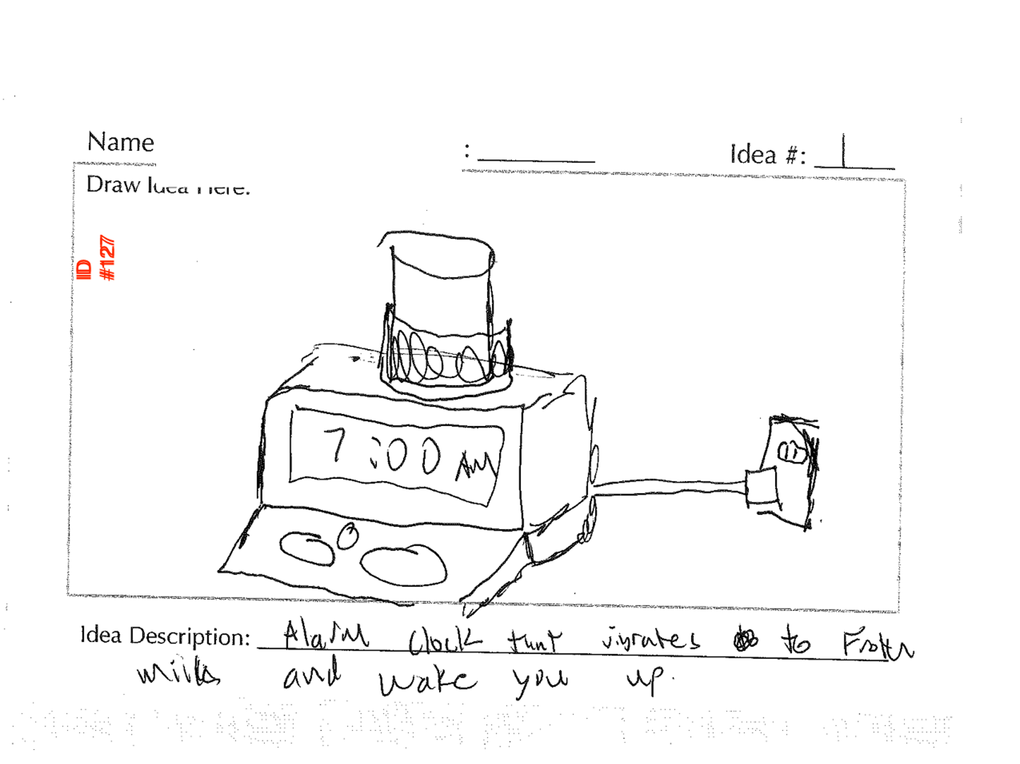 Name : Idea #: 1
Draw Idea Here:
ID #127
7:00 AM
Idea Description: Alarm Clock that virates to Froth
milks and wake you up.